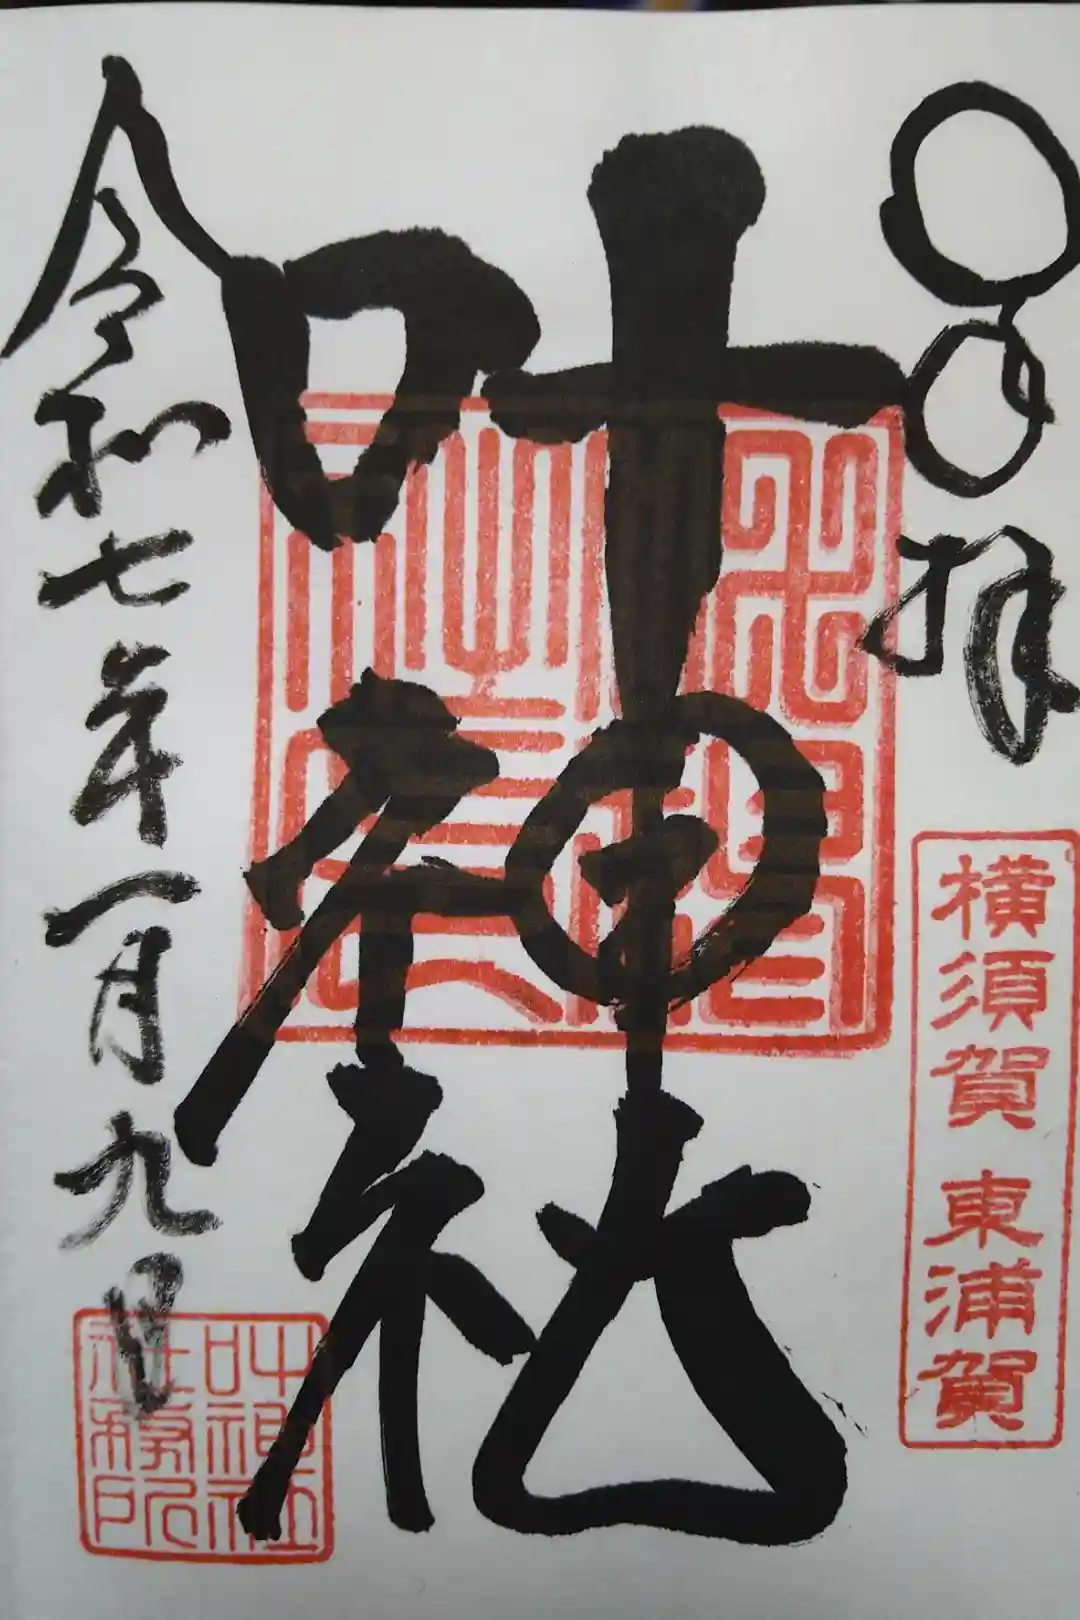 奉拝
横須賀 東浦賀
叶神社
叶神社
社務所
令和七年一月九日